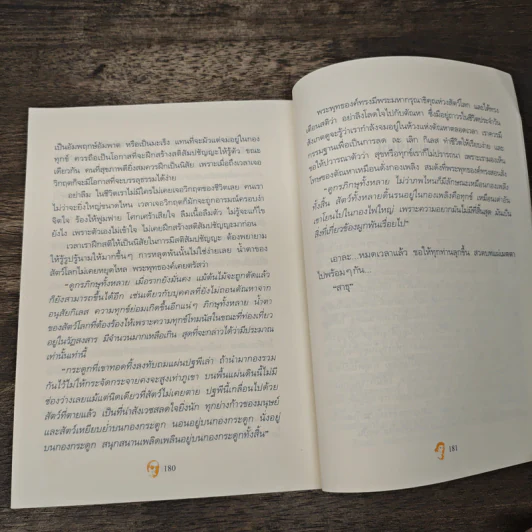 เป็นอัมพฤกษ์อัมพาต หรือเป็นมะเร็ง แทนที่จะมัวแต่จมอยู่ในกอง
ทุกข์ ควรถือเป็นโอกาสที่จะฝึกสร้างสติสัมปชัญญะให้รู้ตัว ขณะ
เดียวกัน คนที่สุขภาพดียิ่งสมควรฝึกเป็นนิสัย เพราะเมื่อถึงเวลาเจอ
วิกฤตก็จะมีโอกาสที่จะบรรลุธรรมได้ง่าย
อย่าลืม ในชีวิตเราไม่มีใครไม่เคยเจอวิกฤตของชีวิตเลย คนเรา
ไม่ว่าจะยิ่งใหญ่ขนาดไหน เวลาเจอวิกฤตก็มักจะถูกอารมณ์ครอบงำ
จิตใจ ร้องไห้ฟูมฟาย โศกเศร้าเสียใจ ลืมเนื้อลืมตัว ไม่รู้จะแก้ไข
ยังไง เพราะตัวเองไม่เข้าใจ ไม่เคยฝึกสร้างสติสัมปชัญญะมาก่อน
เวลาเราฝึกสติให้เป็นนิสัยในการมีสติสัมปชัญญะ ต้องพยายาม
ให้รู้รูปรู้นามให้มากขึ้นๆ การหลุดพ้นนั้นไม่ใช่ง่ายเลย น้ำตาของ
สัตว์โลกไม่เคยหยุดไหล พระพุทธองค์เคยตรัสว่า
"ดูกรภิกษุทั้งหลาย เมื่อรากยังมั่นคง แม้ต้นไม้จะถูกตัดแล้ว
ก็ยังสามารถขึ้นได้อีก เช่นเดียวกับบุคคลที่ยังไม่ถอนตัณหาจาก
อนุสัยกิเลส ความทุกข์ย่อมเกิดขึ้นอีกแน่ๆ ภิกษุทั้งหลาย น้ำตา
ของสัตว์โลกที่ต้องร้องไห้เพราะความทุกข์โทมนัสในขณะที่ท่องเที่ยว
อยู่ในวัฏสงสาร มีจำนวนมากเหลือเกิน สุดที่จะกล่าวได้ว่ามีประมาณ
เท่านั้นเท่านี้
"กระดูกที่เขาทอดทิ้งลงทับถมแผ่นปฐพีเล่า ถ้านำมากองรวม
กันไว้ไม่ให้กระจัดกระจายคงจะสูงเท่าภูเขา บนพื้นแผ่นดินนี้ไม่มี
ช่องว่างเลยแม้แต่นิดเดียวที่สัตว์ไม่เคยตาย ปฐพีนี้เกลื่อนไปด้วย
สัตว์ที่ตายแล้ว เป็นที่น่าสังเวชสลดใจยิ่งนัก ทุกย่างก้าวของมนุษย์
และสัตว์เหยียบย่ำบนกองกระดูก นอนอยู่บนกองกระดูก นั่งอยู่
บนกองกระดูก สนุกสนานเพลิดเพลินอยู่บนกองกระดูกทั้งสิ้น"
180
พระพุทธองค์ทรงมีพระมหากรุณาธิคุณห่วงสัตว์โลก และได้ทรง
เตือนสติว่า อย่าลืงโลดใจไปกับตัณหา ซึ่งมีอยู่ภารในชีวิตประจำวัน
สังเกตดูจะรู้ว่าเรากำลังจมอยู่ในห้วงแห่งตัณหาตลอดเวลา เราควรมี
กรรมฐานเพื่อเป็นการลด ละ เลิก กิเลส ทำชีวิตให้เรียบง่าย และ
ขอให้ปวารณาตัวว่า สุขหรือทุกข์เราก็ไม่ปรารถนา เพราะเรามองเห็น
โทษของตัณหาเหมือนดังกองเพลิง สมดังที่พระพุทธองค์ทรงตรัสว่า
"ดูกรภิกษุทั้งหลาย ไม่ว่าภพไหนก็มีลักษณะเหมือนกองเพลิง
ทั้งสิ้น สัตว์ทั้งหลายดิ้นรนอยู่ในกองเพลิงคือทุกข์ เหมือนเต่าอัน
เขาโยนไปในกองไฟใหญ่ เพราะความอยากมันไม่มีที่สิ้นสุด มันเป็น
สิ่งที่เกี่ยวข้องผูกพันเรื่อยไป"
เอาละ...หมดเวลาแล้ว ขอให้ทุกท่านลุกขึ้น
ไปพร้อมๆ กัน...
"สาธุ"
181